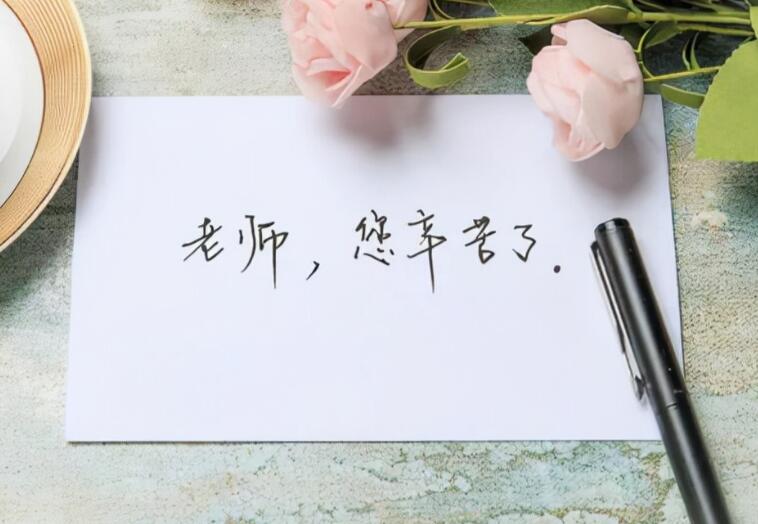 老师，您辛苦了.